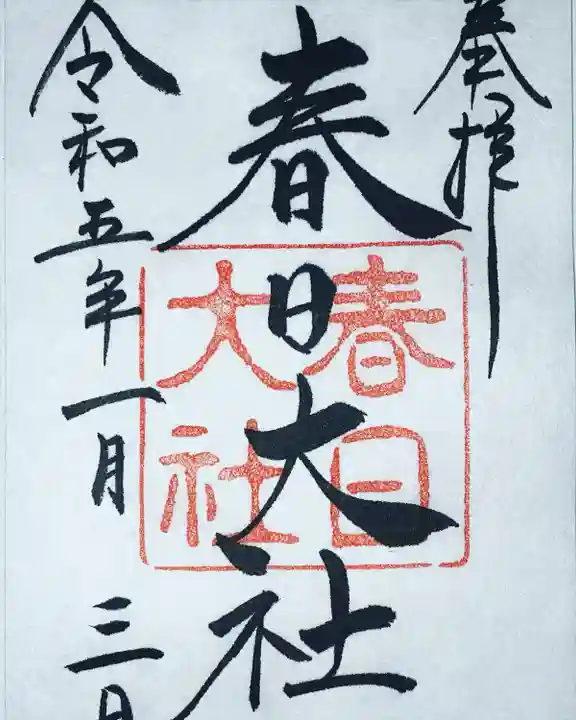 奉拝
春日大社
春日
大社
令和五年一月三日